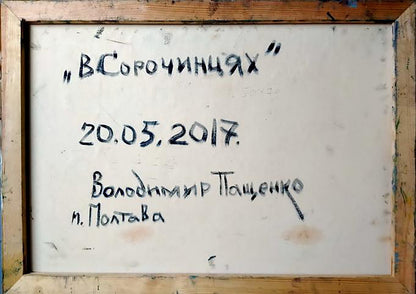 „В Сорочинцях"
20.05.2017.
Володимир Пащенко
м. Полтава